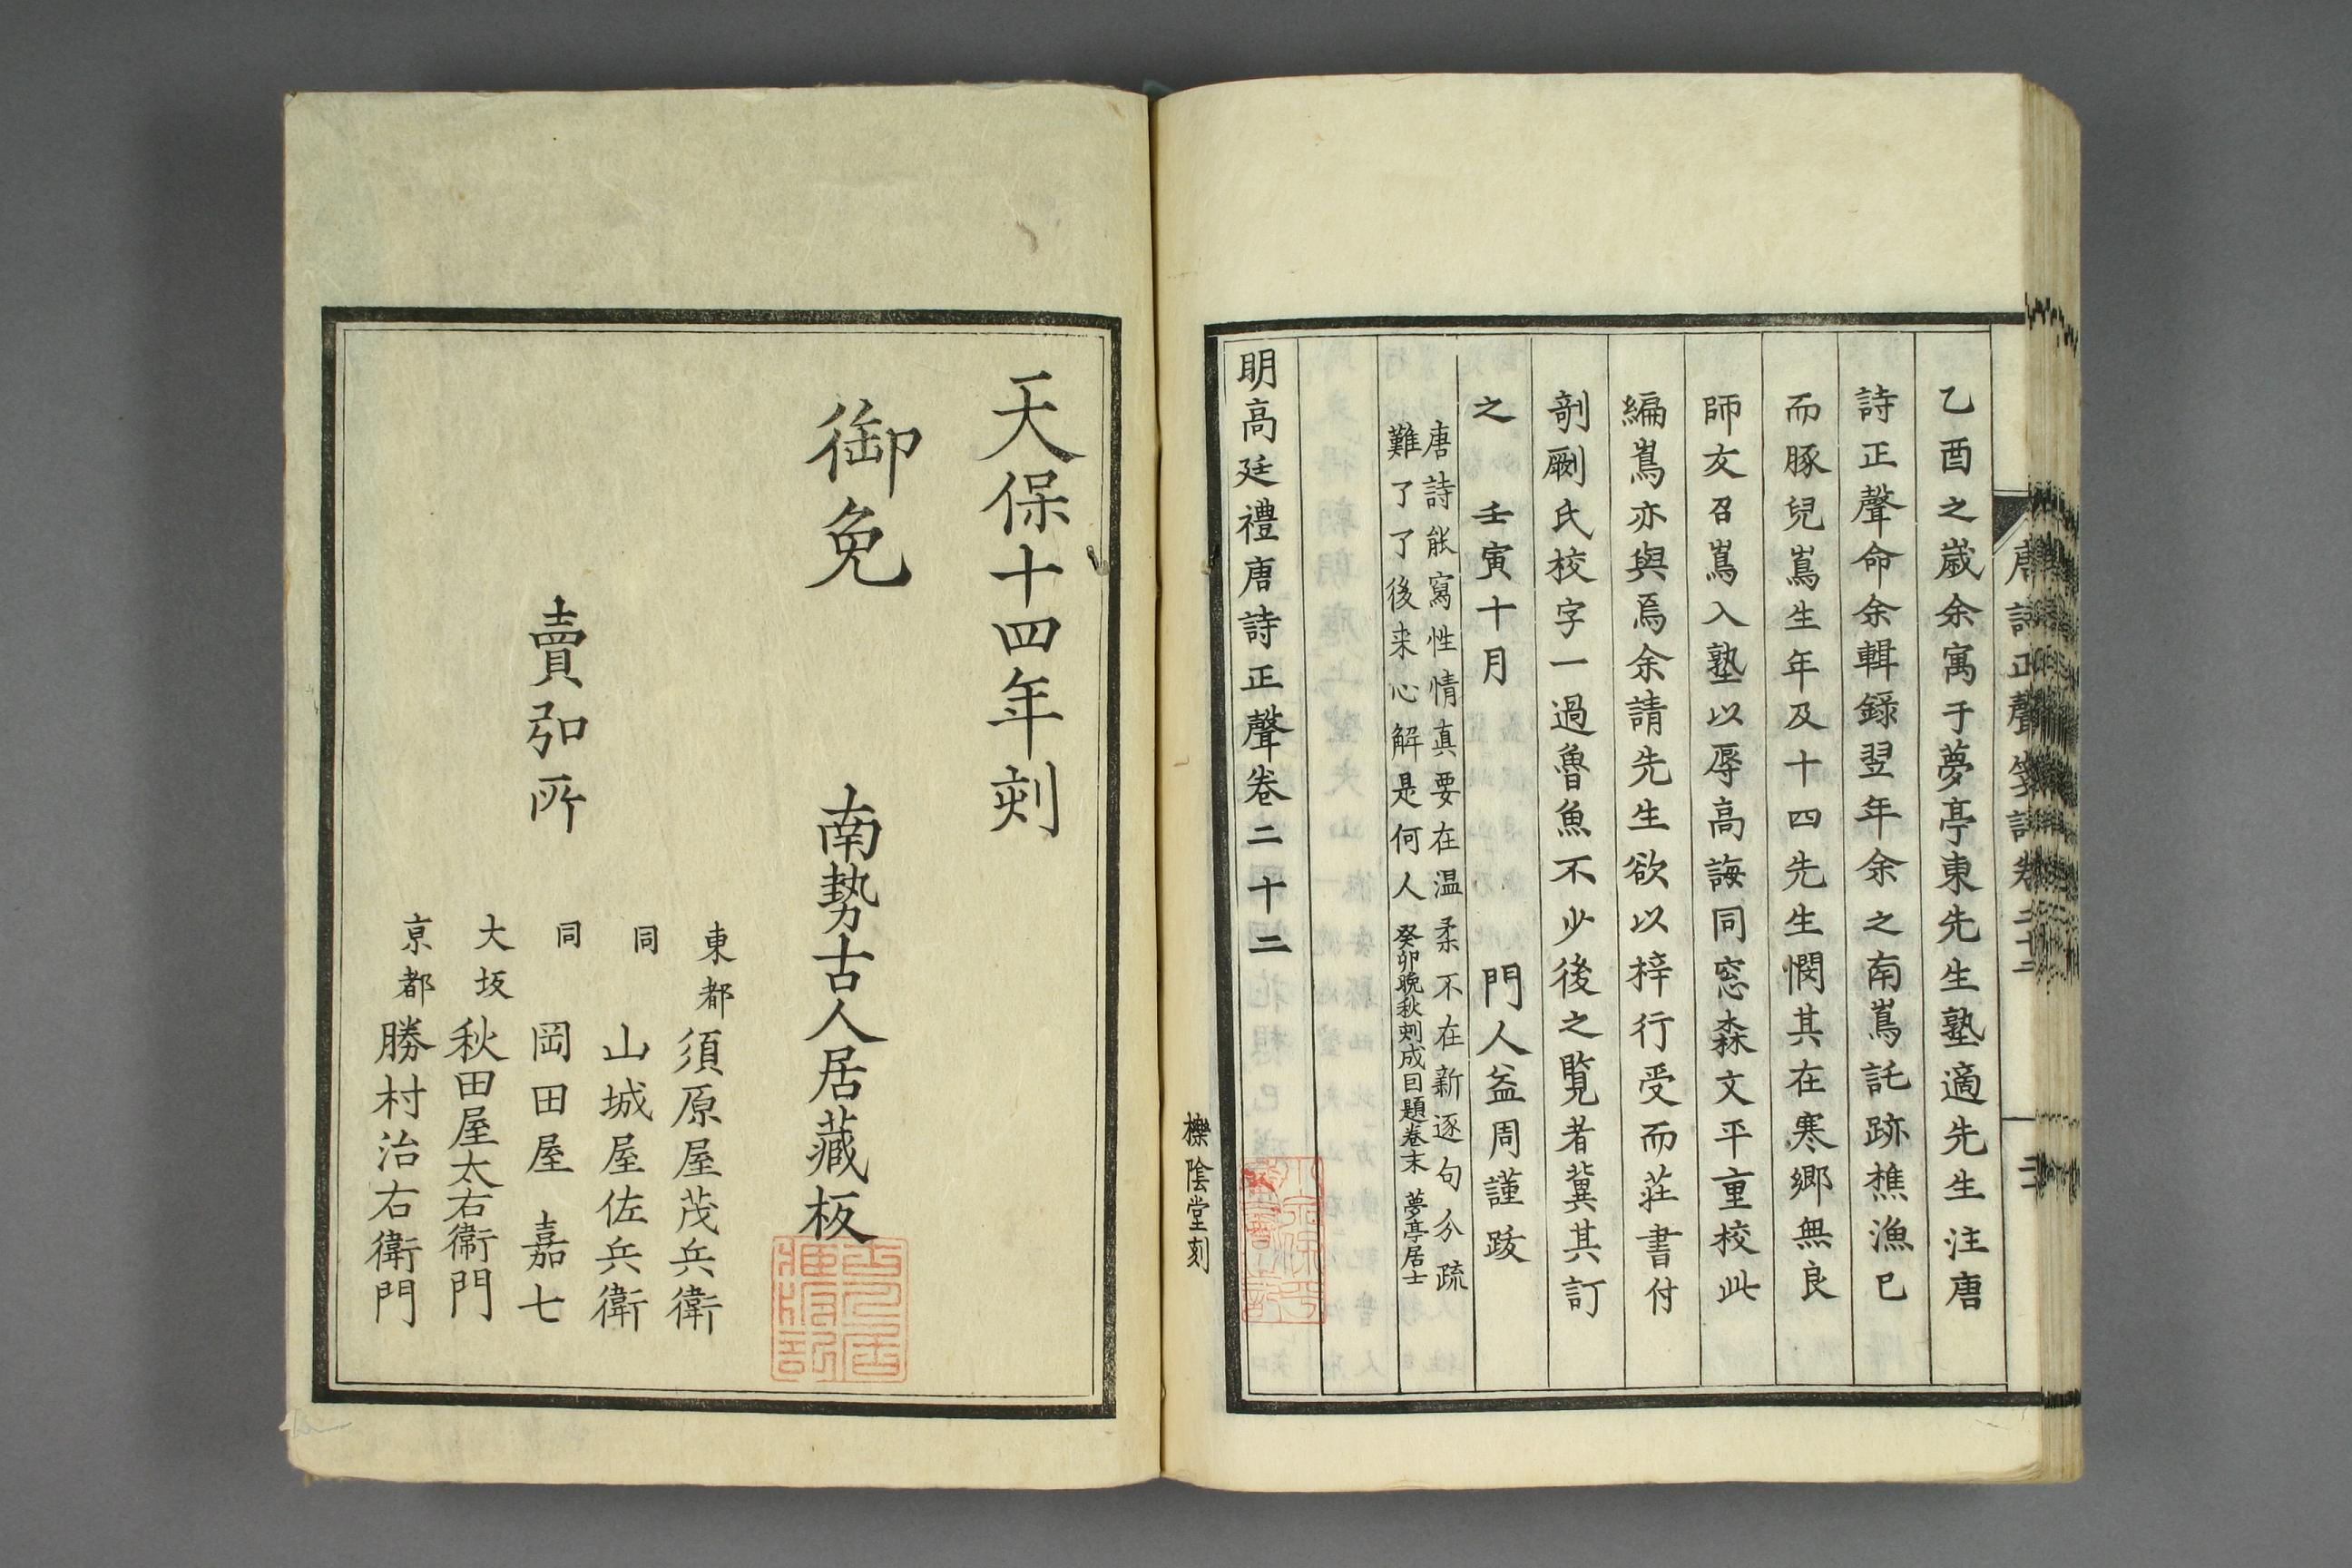 乙酉之歲余寓于夢亭東先生塾適先生注唐
詩正聲命余輯錄翌年余之南嶌託跡樵漁已
而豚兒嶌生年及十四先生憫其在寒鄉無良
師友召嶌入塾以辱高誨同窓森文平重校此
編嶌亦與焉余請先生欲以梓行受而莊書付
剞劂氏校字一過魯魚不少後之覧者冀其訂
之　壬寅十月　門人益周謹跋
唐詩能寫性情真要在温柔不在新逐句分疏
難了了後来心解是何人　癸卯晩秋刻成日題卷末　夢亭居士
明高廷禮唐詩正聲卷二十二
櫟陰堂刻
天保十四年刻
御免　南勢古人居藏板
賣弘所
東都　須原屋茂兵衛
同　山城屋佐兵衛
同　岡田屋嘉七
大坂　秋田屋太右衛門
京都　勝村治右衛門